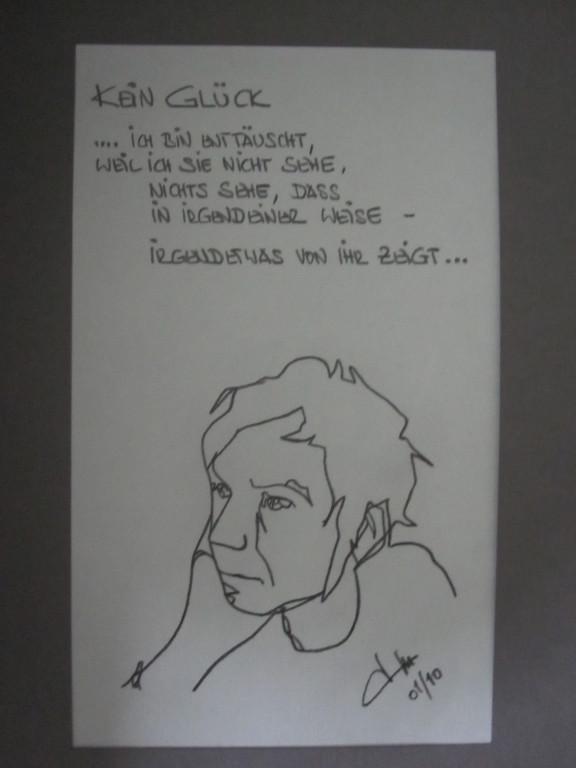 KEIN GLÜCK
.... ICH BIN ENTTÄUSCHT,
WEIL ICH SIE NICHT SEHE,
NICHTS SEHE, DASS
IN IRGENDEINER WEISE -
IRGENDETWAS VON IHR ZEIGT...
01/10